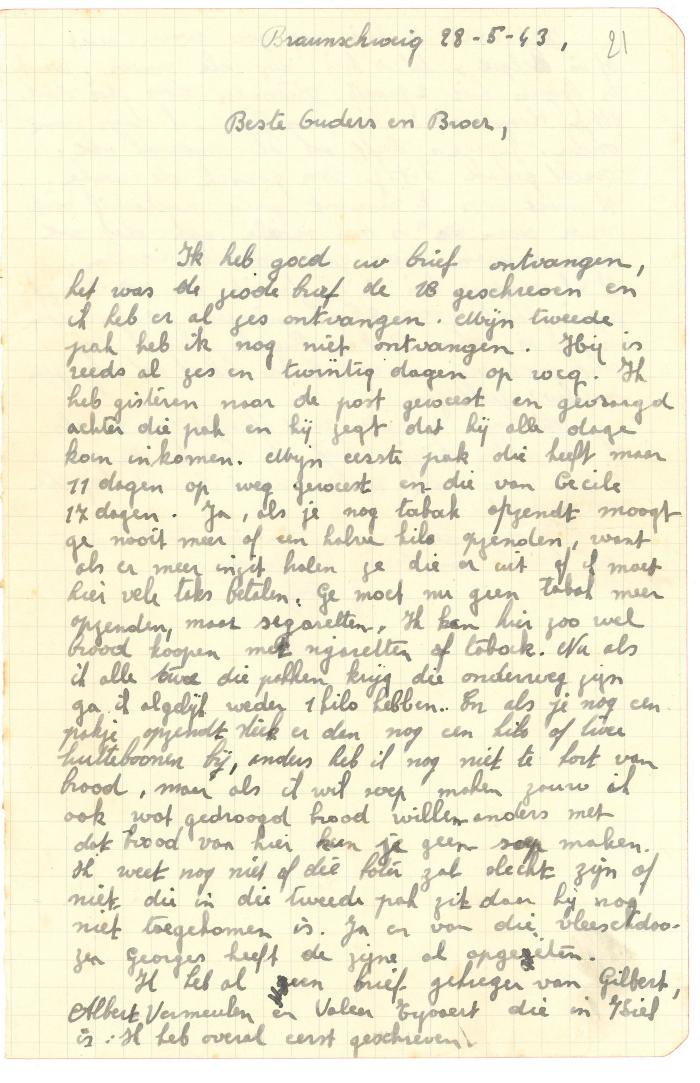 Braunschweig 28-5-43, 21
Beste Ouders en Broer,
Ik heb goed uw brief ontvangen,
het was de zesde brief de 18 geschreven en
ik heb er al zes ontvangen. Mijn tweede
pak heb ik nog niet ontvangen. Hij is
reeds al zes en twintig dagen op weg. Ik
heb gisteren naar de post geweest en gevraagd
achter die pak en hij zegt dat hij alle dage
kan inkomen. Mijn eerste pak die heeft maar
11 dagen op weg geweest en die van Cecile
17 dagen. Ja, als je nog tabak opzendt moogt
ge nooit meer of een halve kilo opzenden, want
als er meer inzit halen ze die er uit of ik moet
hier vele taks betalen. Ge moet nu geen tabak meer
opzenden, maar segaretten. Ik kan hier zoo wel
brood koopen met sigaretten of tabak. Nu als
ik alle twee die pakken krijg die onderweg zijn
ga ik algelijk weder 1 kilo hebben.. En als je nog een
pakje opzendt steek er dan nog een kilo of twee
hutteboonen bij, anders heb ik nog niet te kort van
brood, maar als ik wil soep maken zouw ik
ook wat gedroogd brood willen anders met
dat brood van hier kun je geen soep maken.
Ik weet nog niet of die boter zal slecht zijn of
niet die in die tweede pak zit daar hij nog
niet toegekomen is. Ja er van die vleeschdoo-
zen Georges heeft de zijne al opgeëten.
Ik heb al een brief gekregen van Gilbert,
Albert Vermeulen en Valeer die in Kiel
is. Ik heb overal eerst geschreven.